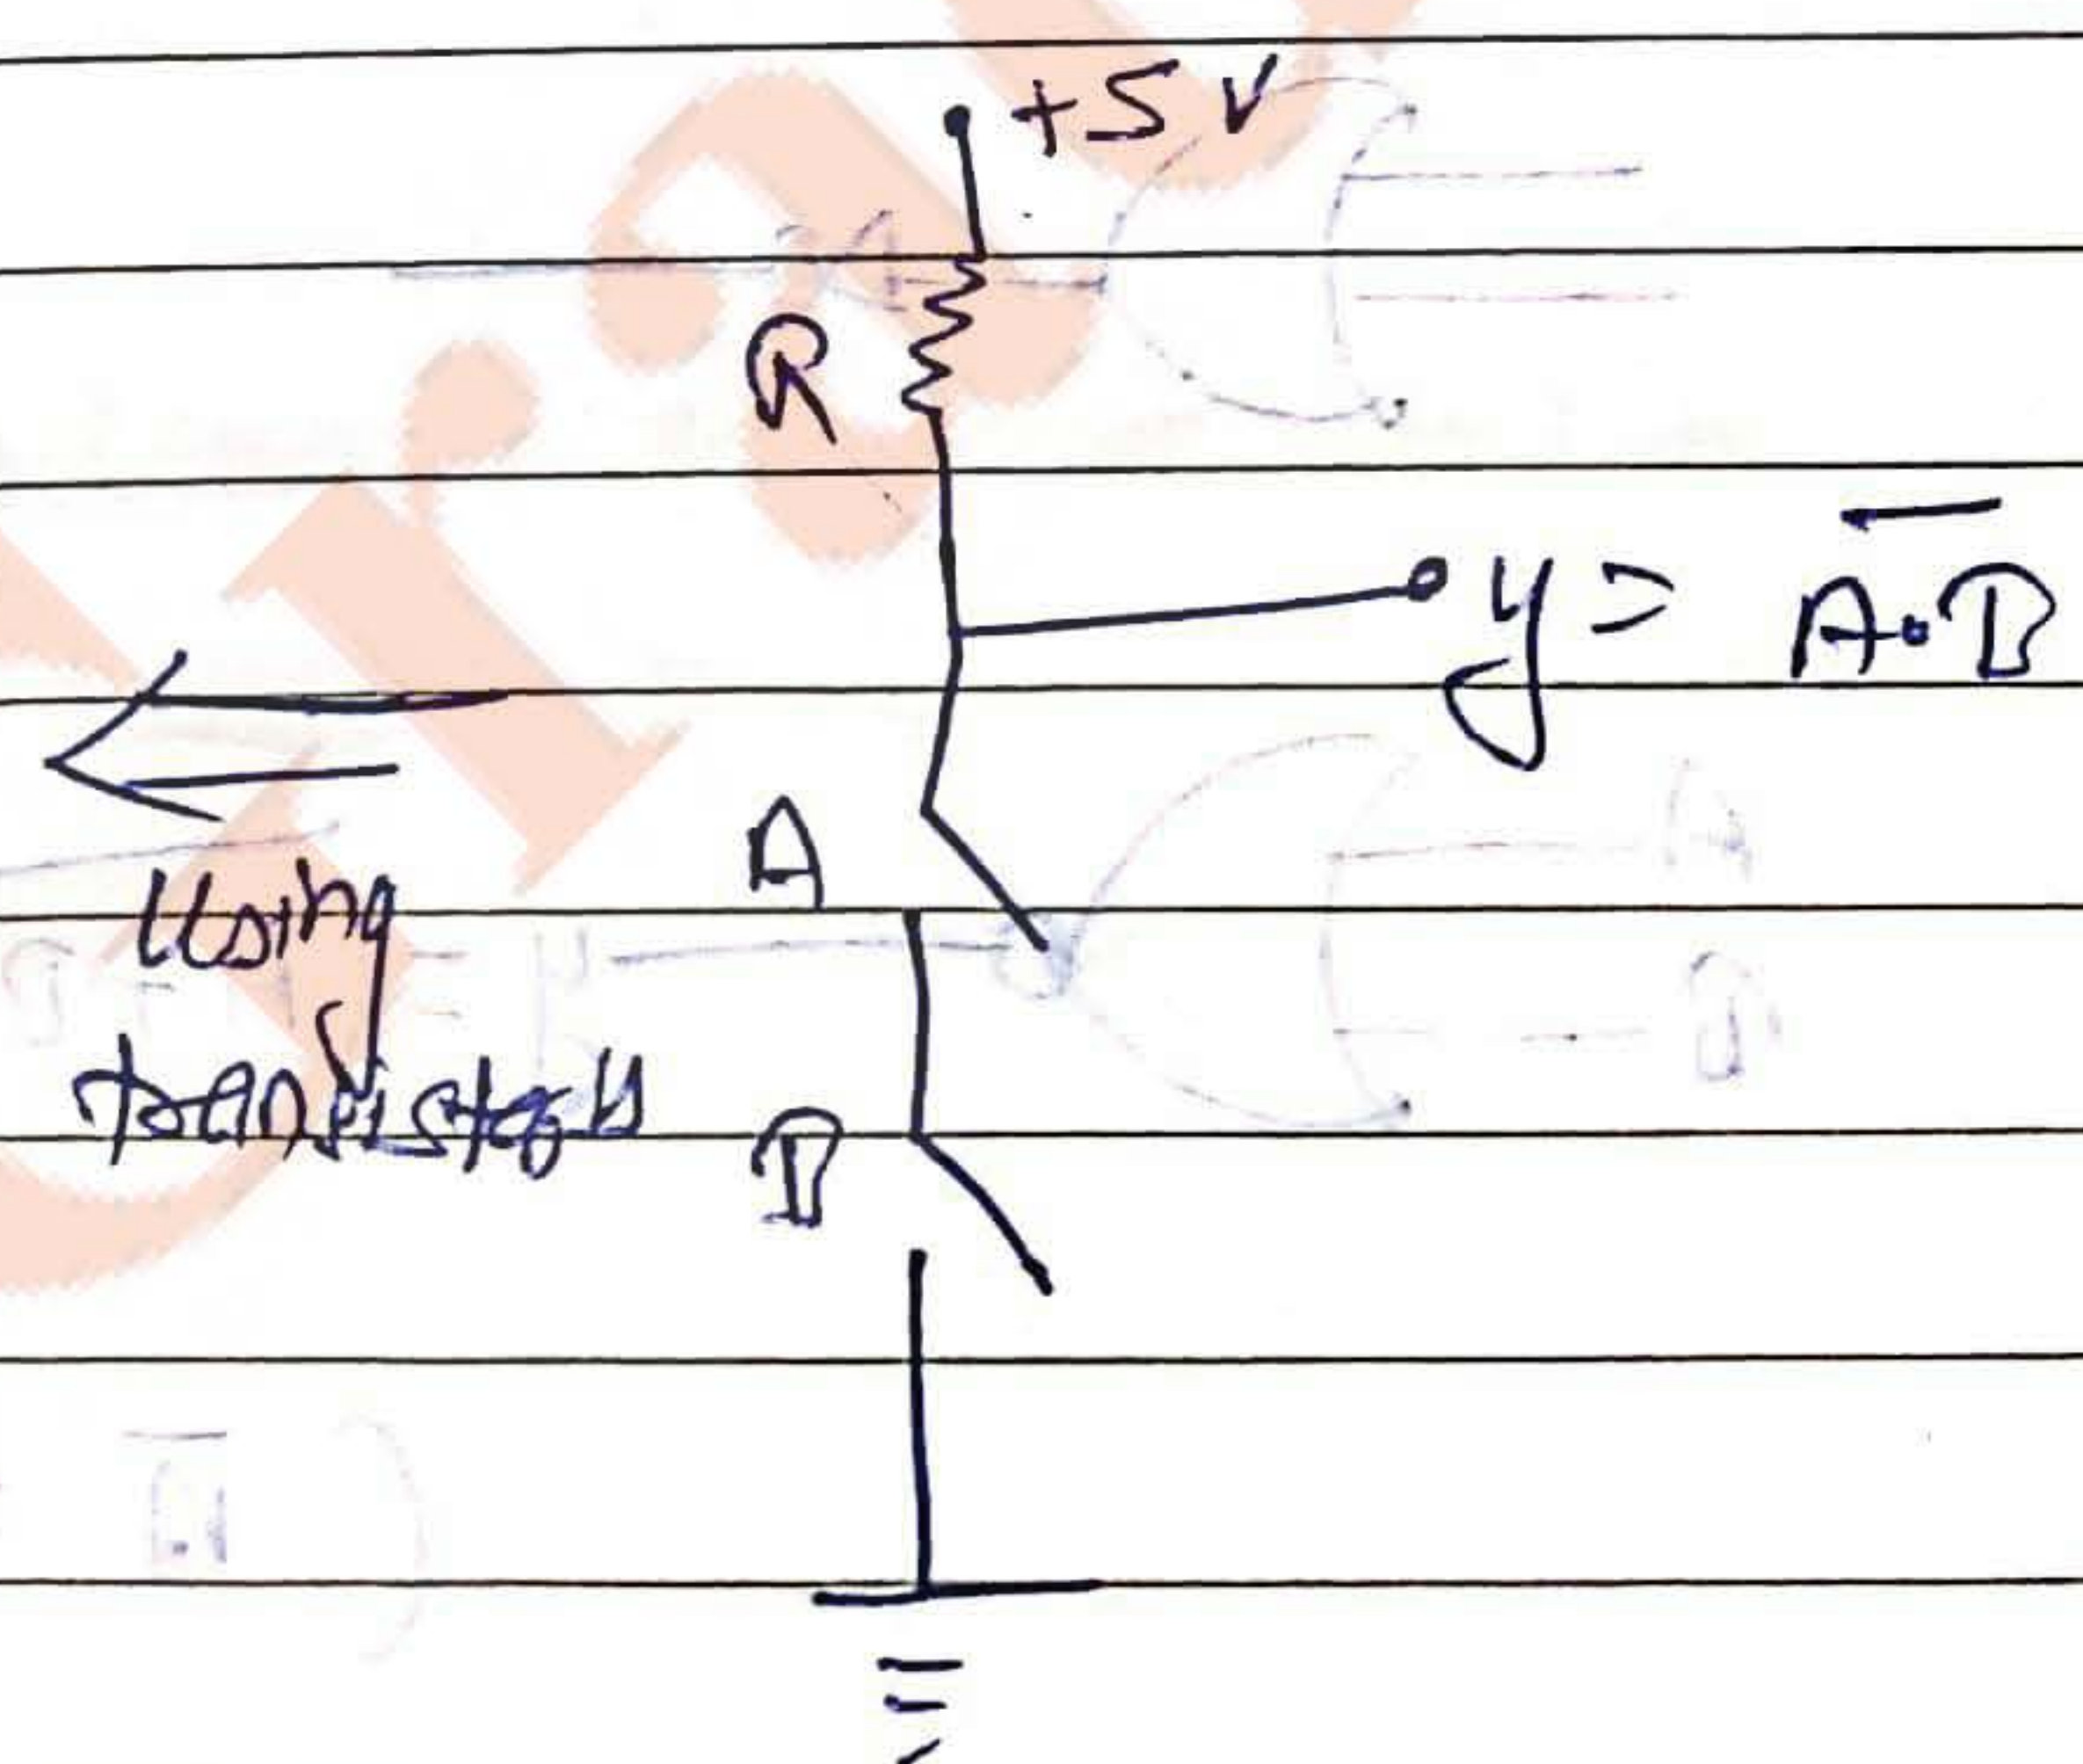 +5 V
R
y = \overline{A·B}
A
Using
transistors
B